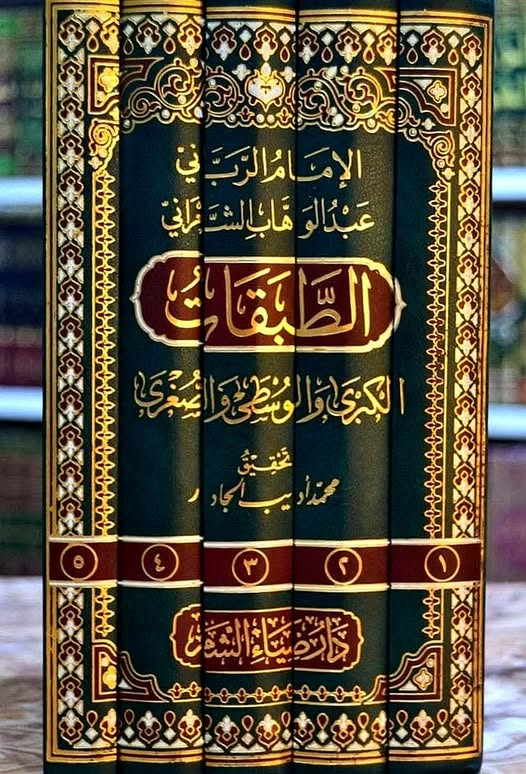 الإمَامُ الرَّبَّانِيّ
عَبْدُ الوَهَّابِ الشَّعْرَانِيّ
الطَّبَقَاتُ
الكُبْرَى وَالوُسْطَى وَالصُّغْرَى
تَحْقِيقُ
محمّد أديب الجادر
١ ٢ ٣ ٤ ٥
دَار ضِيَاء الشَّام